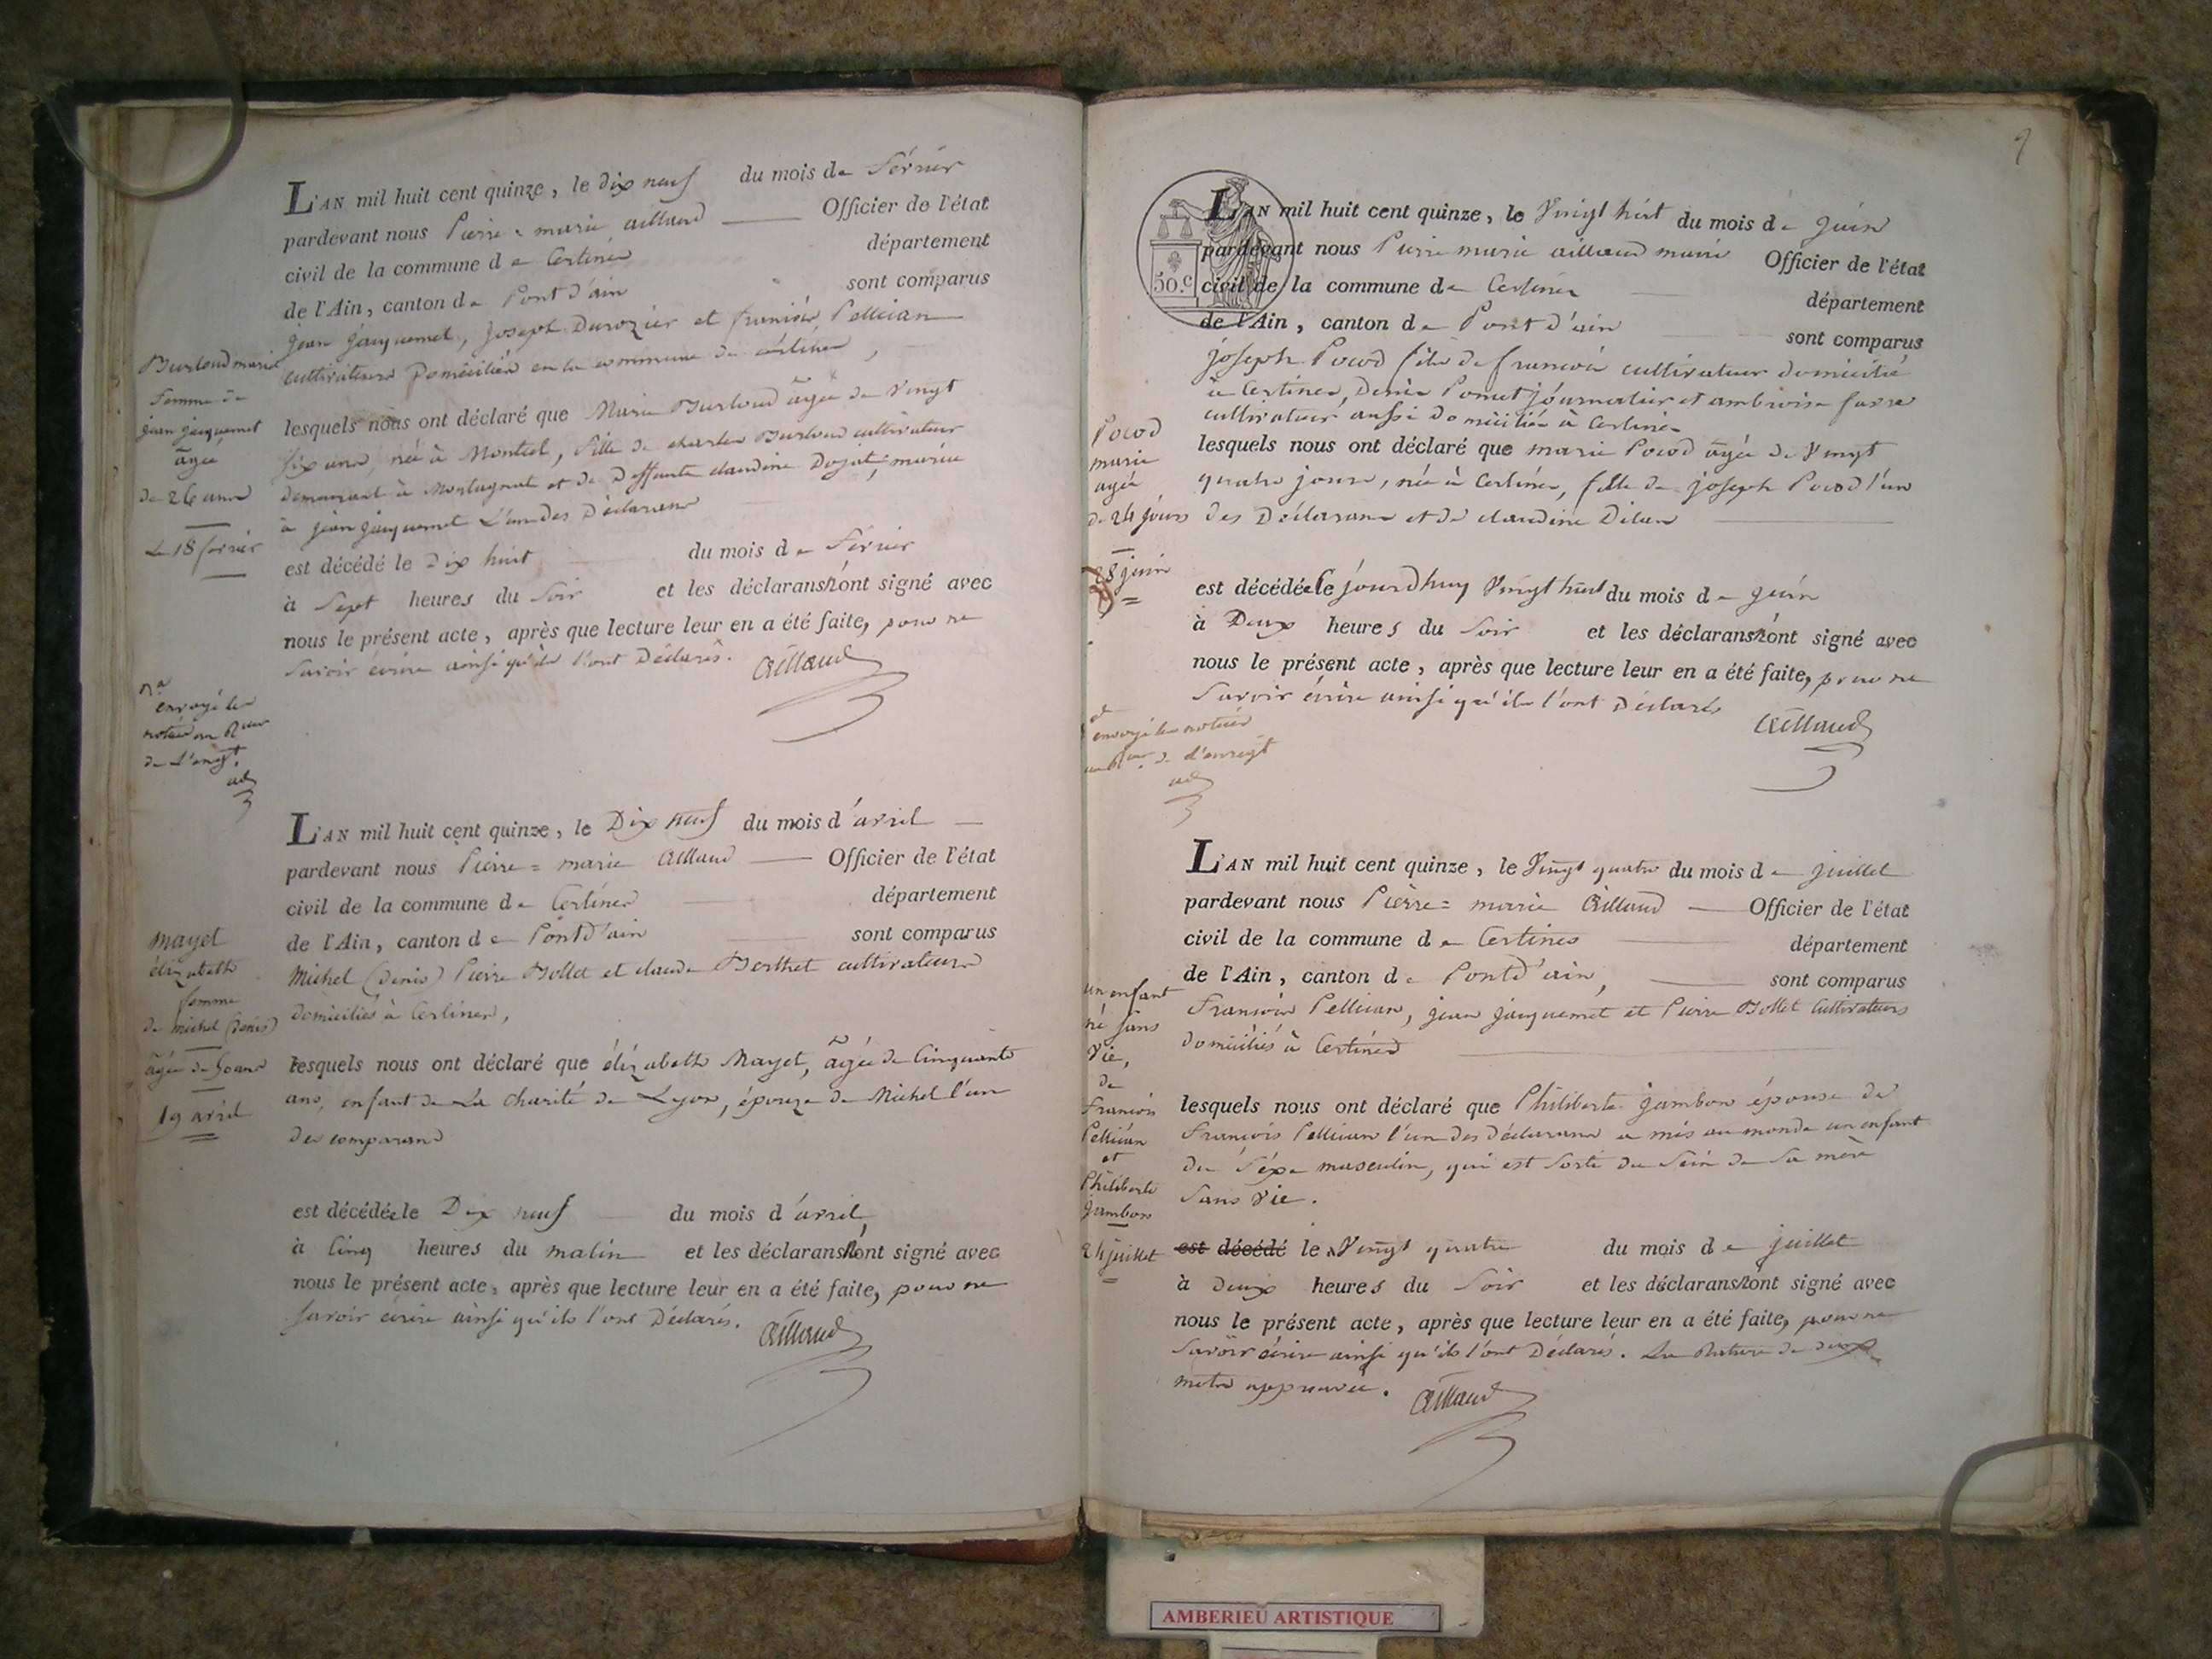 L'AN mil huit cent quinze, le dix neuf du mois de février
pardevant nous Pierre = marie aillaud Officier de l'état
civil de la commune de Certines département
de l'Ain, canton de Pont d'ain sont comparus
jean jacquemet, joseph Durozier et francois Pellican
cultivateurs Domiciliés en la commune de certines,
lesquels nous ont déclaré que Marie Burloud âgée de vingt
six ans, née à Montcel, fille de charles Burloud cultivateur
demeurant à Montagnat et de Deffunte claudine Dojat, mariée
à jean jacquemet L'un des Déclarans
est décédé le dix huit du mois de février
à Sept heures du Soir et les déclarans n'ont signé avec
nous le présent acte, après que lecture leur en a été faite, pour ne
Savoir écrire ainsi qu'ils l'ont Déclarés. Aillaud
Burloud marie
femme de
jean jacquemet
âgée
de 26 ans
Le 18 février
envoyé les
notices au
de L'enregt.
L'AN mil huit cent quinze, le Dix neuf du mois d'avril
pardevant nous Pierre = marie Aillaud Officier de l'état
civil de la commune de Certines département
de l'Ain, canton de Pont d'ain sont comparus
Michel (Denis) Pierre Bollet et claude Berthet cultivateurs
Domiciliés à Certines,
lesquels nous ont déclaré que élizabeth Mayet, âgée de Cinquante
ans, enfant de La charité de Lyon, épouze de Michel l'un
des comparans
est décédée le Dix neuf du mois d'avril,
à Cinq heures du matin et les déclarans n'ont signé avec
nous le présent acte, après que lecture leur en a été faite, pour ne
Savoir écrire ainsi qu'ils l'ont Déclarés. Aillaud
mayet
élizabeth
femme
de michel (Denis)
âgée de 50 ans
19 avril
9
50.c
L'AN mil huit cent quinze, le Vingt huit du mois de juin
pardevant nous Pierre marie aillaud maire Officier de l'état
civil de la commune de Certines département
de l'Ain, canton de Pont d'ain sont comparus
joseph Pocod fils de francois cultivateur domicilié
à Certines, Denis Pomet journalier et ambroise favre
cultivateur aussi Domiciliés à Certines
lesquels nous ont déclaré que marie Pocod âgée de Vingt
quatre jours, née à Certines, fille de joseph Pocod l'un
des Déclarans et de claudine
est décédée le jourdhuy Vingt huit du mois de juin
à Deux heures du Soir et les déclarans n'ont signé avec
nous le présent acte, après que lecture leur en a été faite, pour ne
Savoir écrire ainsi qu'ils l'ont Déclarés
Aillaud
Pocod
marie
agée
de 24 jours
28 juin
envoyé les notices
d'enregt
L'AN mil huit cent quinze, le Vingt quatre du mois de juillet
pardevant nous Pierre = marie Aillaud Officier de l'état
civil de la commune de Certines département
de l'Ain, canton de Pont d'ain, sont comparus
Francois Pellican, jean jacquemet et Pierre Bollet Cultivateurs
domiciliés à Certines
lesquels nous ont déclaré que Philiberte jambon épouse de
François Pellican l'un des Déclarans a mis au monde un enfant
du Séxe masculin, qui est sorti du Sein de Sa mère
Sans vie.
est décédé le Vingt quatre du mois de juillet
à Deux heures du Soir et les déclarans n'ont signé avec
nous le présent acte, après que lecture leur en a été faite, pour ne
Savoir écrire ainsi qu'ils l'ont Déclarés. La Rature de deux
mots approuvée. Aillaud
un enfant
né sans
vie,
de
Francois
Pellican
et
Philiberte
jambon
24 juillet
AMBERIEU ARTISTIQUE